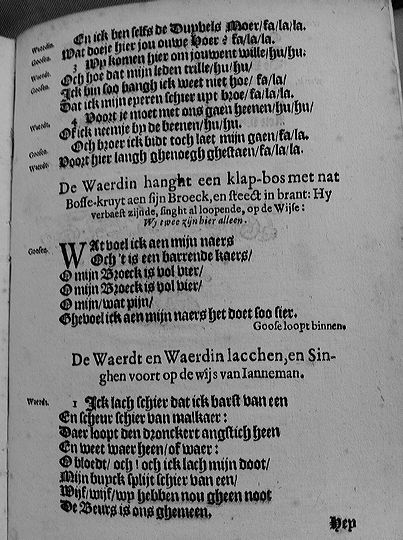 Waerdin. En ick ben selfs de Duyvels Moer/fa/la/la.
Goosen. Wat doeje hier jou ouwe Hoer? fa/la/la.
Waerdi. 3 Wy komen hier om jouwent wille/hu/hu.
Goosen. Och hoe dat mijn leden trille/hu/hu/
Ick bin soo bangh ick weet niet hoe/ fa/la/
Dat ick mijn eperen schier upt broe/fa/la/la.
Waerdi. 4 Voort je moet met ons gaen heenen/hu/hu/
Of ick neemje bp de beenen/hu/hu.
Goosen. Och broer ick bidt toch laet mijn gaen/fa/la.
Waerdin. Voort hier langh ghenoegh ghestaen/fa/la/la.
De Waerdin hanght een klap-bos met nat
Bosse-kruyt aen sijn Broeck, en steect in brant: Hy
verbaest zijnde, singht al loopende, op de Wijse:
Wy twee zijn hier alleen.
Goosen. WAt voel ick aen mijn naers
Och 't is een barrende kaers/
O mijn Broeck is vol vier/
O mijn Broeck is vol vier/
O mijn/wat pijn/
Ghevoel ick aen mijn naers het doet soo sier.
Goose loopt binnen.
De Waerdt en Waerdin lacchen, en Sin-
ghen voort op de wijs van Ianneman.
Waerdt. 1 Ick lach schier dat ick barst van een
En scheur schier van malkaer:
Daer loopt den dronckert anghstich heen
En weet waer heen/of waer:
O bloedt/ och! och ick lach mijn doot/
Mijn buyck splijt schier van een/
Wijf/wijf/wy hebben nou gheen noot
De Beurs is ons ghemeen.
Hey